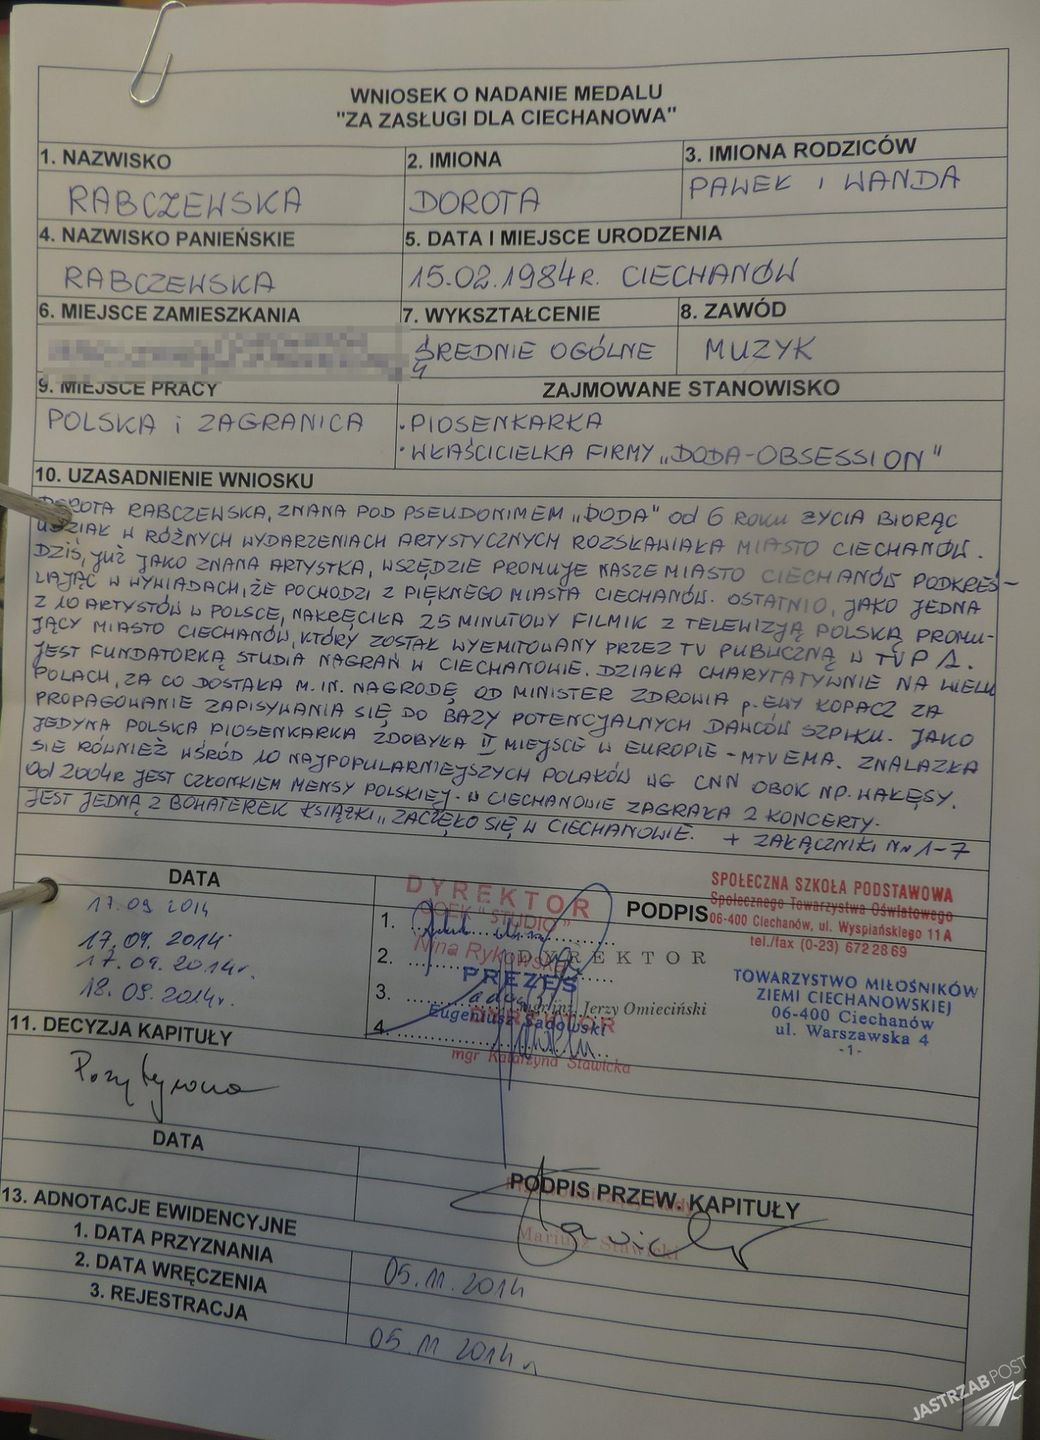 WNIOSEK O NADANIE MEDALU
"ZA ZASŁUGI DLA CIECHANOWA"
1. NAZWISKO
2. IMIONA
3. IMIONA RODZICÓW
RABCZEWSKA
DOROTA
PAWEŁ I WANDA
4. NAZWISKO PANIEŃSKIE
5. DATA I MIEJSCE URODZENIA
RABCZEWSKA
15.02.1984r. CIECHANÓW
6. MIEJSCE ZAMIESZKANIA
7. WYKSZTAŁCENIE
8. ZAWÓD
ŚREDNIE OGÓLNE
MUZYK
9. MIEJSCE PRACY
ZAJMOWANE STANOWISKO
POLSKA i ZAGRANICA
• PIOSENKARKA
• WŁAŚCICIELKA FIRMY „DODA-OBSESSION"
10. UZASADNIENIE WNIOSKU
DOROTA RABCZEWSKA, ZNANA POD PSEUDONIMEM „DODA" od 6 ROKU ŻYCIA BIORĄC
UDZIAŁ W RÓŻNYCH WYDARZENIACH ARTYSTYCZNYCH ROZSŁAWIAŁA MIASTO CIECHANÓW.
DZIŚ, JUŻ JAKO ZNANA ARTYSTKA, WSZĘDZIE PROMUJE NASZE MIASTO CIECHANÓW PODKREŚ-
LAJĄC W WYWIADACH, ŻE POCHODZI Z PIĘKNEGO MIASTA CIECHANÓW. OSTATNIO, JAKO JEDNA
Z 10 ARTYSTÓW W POLSCE, NAKRĘCIŁA 25 MINUTOWY FILMIK Z TELEWIZJĄ POLSKĄ PROMU-
JĄCY MIASTO CIECHANÓW, KTÓRY ZOSTAŁ WYEMITOWANY PRZEZ TV PUBLICZNĄ W TVP 1.
JEST FUNDATORKĄ STUDIA NAGRAŃ W CIECHANOWIE. DZIAŁA CHARYTATYWNIE NA WIELU
POLACH, ZA CO DOSTAŁA M.IN. NAGRODĘ OD MINISTER ZDROWIA p. EWY KOPACZ ZA
PROPAGOWANIE ZAPISYWANIA SIĘ DO BAZY POTENCJALNYCH DAWCÓW SZPIKU. JAKO
JEDYNA POLSKA PIOSENKARKA ZDOBYŁA II MIEJSCE W EUROPIE - MTV EMA. ZNALAZŁA
SIĘ RÓWNIEŻ WŚRÓD 10 NAJPOPULARNIEJSZYCH POLAKÓW WG CNN OBOK NP. WAŁĘSY.
Od 2004r JEST CZŁONKIEM MENSY POLSKIEJ. W CIECHANOWIE ZAGRAŁA 2 KONCERTY.
JEST JEDNĄ Z BOHATEREK KSIĄŻKI „ZACZĘŁO SIĘ W CIECHANOWIE. + ZAŁĄCZNIKI Nr 1-7
DATA
PODPIS
17.09 2014
17.09. 2014r
17.09. 2014r.
18.09. 2014r.
1.
2.
3.
4.
DYREKTOR
"STUDIO"
Nina Rykowska
DYREKTOR
PREZES
mgr inż. Jerzy Omieciński
Eugeniusz Sadowski
DYREKTOR
mgr Katarzyna Stawicka
SPOŁECZNA SZKOŁA PODSTAWOWA
Społecznego Towarzystwa Oświatowego
06-400 Ciechanów, ul. Wyspiańskiego 11A
tel./fax (0-23) 672 28 69
TOWARZYSTWO MIŁOŚNIKÓW
ZIEMI CIECHANOWSKIEJ
06-400 Ciechanów
ul. Warszawska 4
-1-
11. DECYZJA KAPITUŁY
Pozytywna
DATA
PODPIS PRZEW. KAPITUŁY
Mariusz Stawicki
13. ADNOTACJE EWIDENCYJNE
1. DATA PRZYZNANIA
2. DATA WRĘCZENIA
05.11.2014
3. REJESTRACJA
05.11 2014 r
JASTRZĄB POST